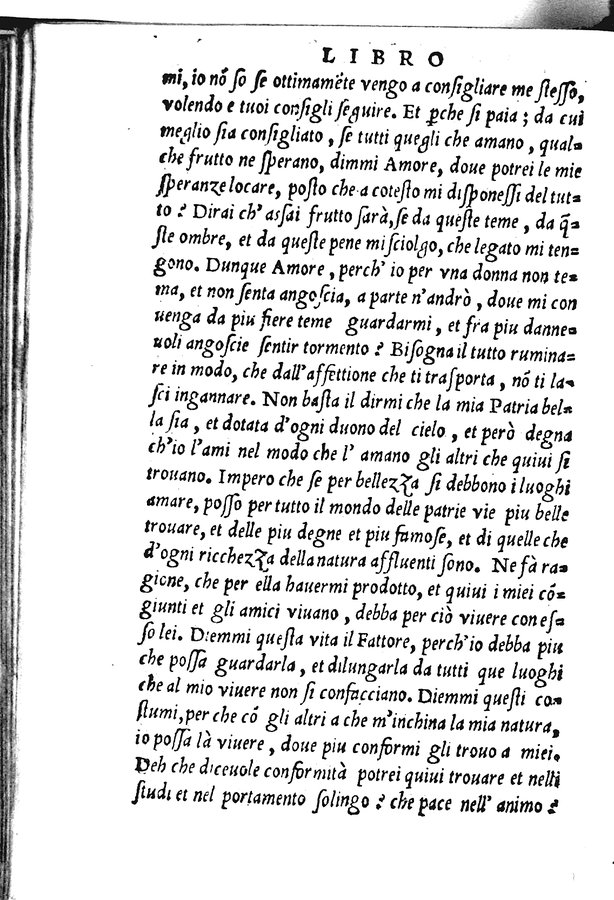 LIBRO
mi, io nõ ſo ſe ottimamẽte vengo a conſigliare me ſteſſo,
volendo e tuoi conſigli ſeguire. Et ꝑche ſi paia ; da cui
meglio ſia conſigliato , ſe tutti quegli che amano , qual-
che frutto ne ſperano, dimmi Amore, doue potrei le mie
ſperanze locare, poſto che a coteſto mi diſponeſſi del tut-
to ? Dirai ch' aſſai frutto ſarà, ſe da queſte teme , da q̃-
ſte ombre, et da queſte pene mi ſciolgo, che legato mi ten-
gono. Dunque Amore , perch' io per vna donna non te-
ma, et non ſenta angoſcia, a parte n'andrò , doue mi con
uenga da piu fiere teme guardarmi , et fra piu danne-
uoli angoſcie ſentir tormento ? Biſogna il tutto rumina-
re in modo, che dall'affettione che ti traſporta , nõ ti la-
ſci ingannare. Non baſta il dirmi che la mia Patria bel-
la ſia , et dotata d'ogni duono del cielo , et però degna
ch'io l'ami nel modo che l' amano gli altri che quiui ſi
trouano. Impero che ſe per bellezza ſi debbono i luoghi
amare, poſſo per tutto il mondo delle patrie vie piu belle
trouare, et delle piu degne et piu famoſe, et di quelle che
d'ogni ricchezza della natura affluenti ſono. Ne fà ra-
gione, che per ella hauermi prodotto, et quiui i miei cõ-
giunti et gli amici viuano , debba per ciò viuere con eſ-
ſo lei. Diemmi queſta vita il Fattore, perch'io debba piu
che poſſa guardarla , et dilungarla da tutti que luoghi
che al mio viuere non ſi confacciano. Diemmi queſti co-
ſtumi, per che cõ gli altri a che m'inchina la mia natura,
io poſſa là viuere , doue piu conformi gli trouo a miei.
Deh che diceuole conformità potrei quiui trouare et nelli
ſtudi et nel portamento ſolingo ? che pace nell' animo ?